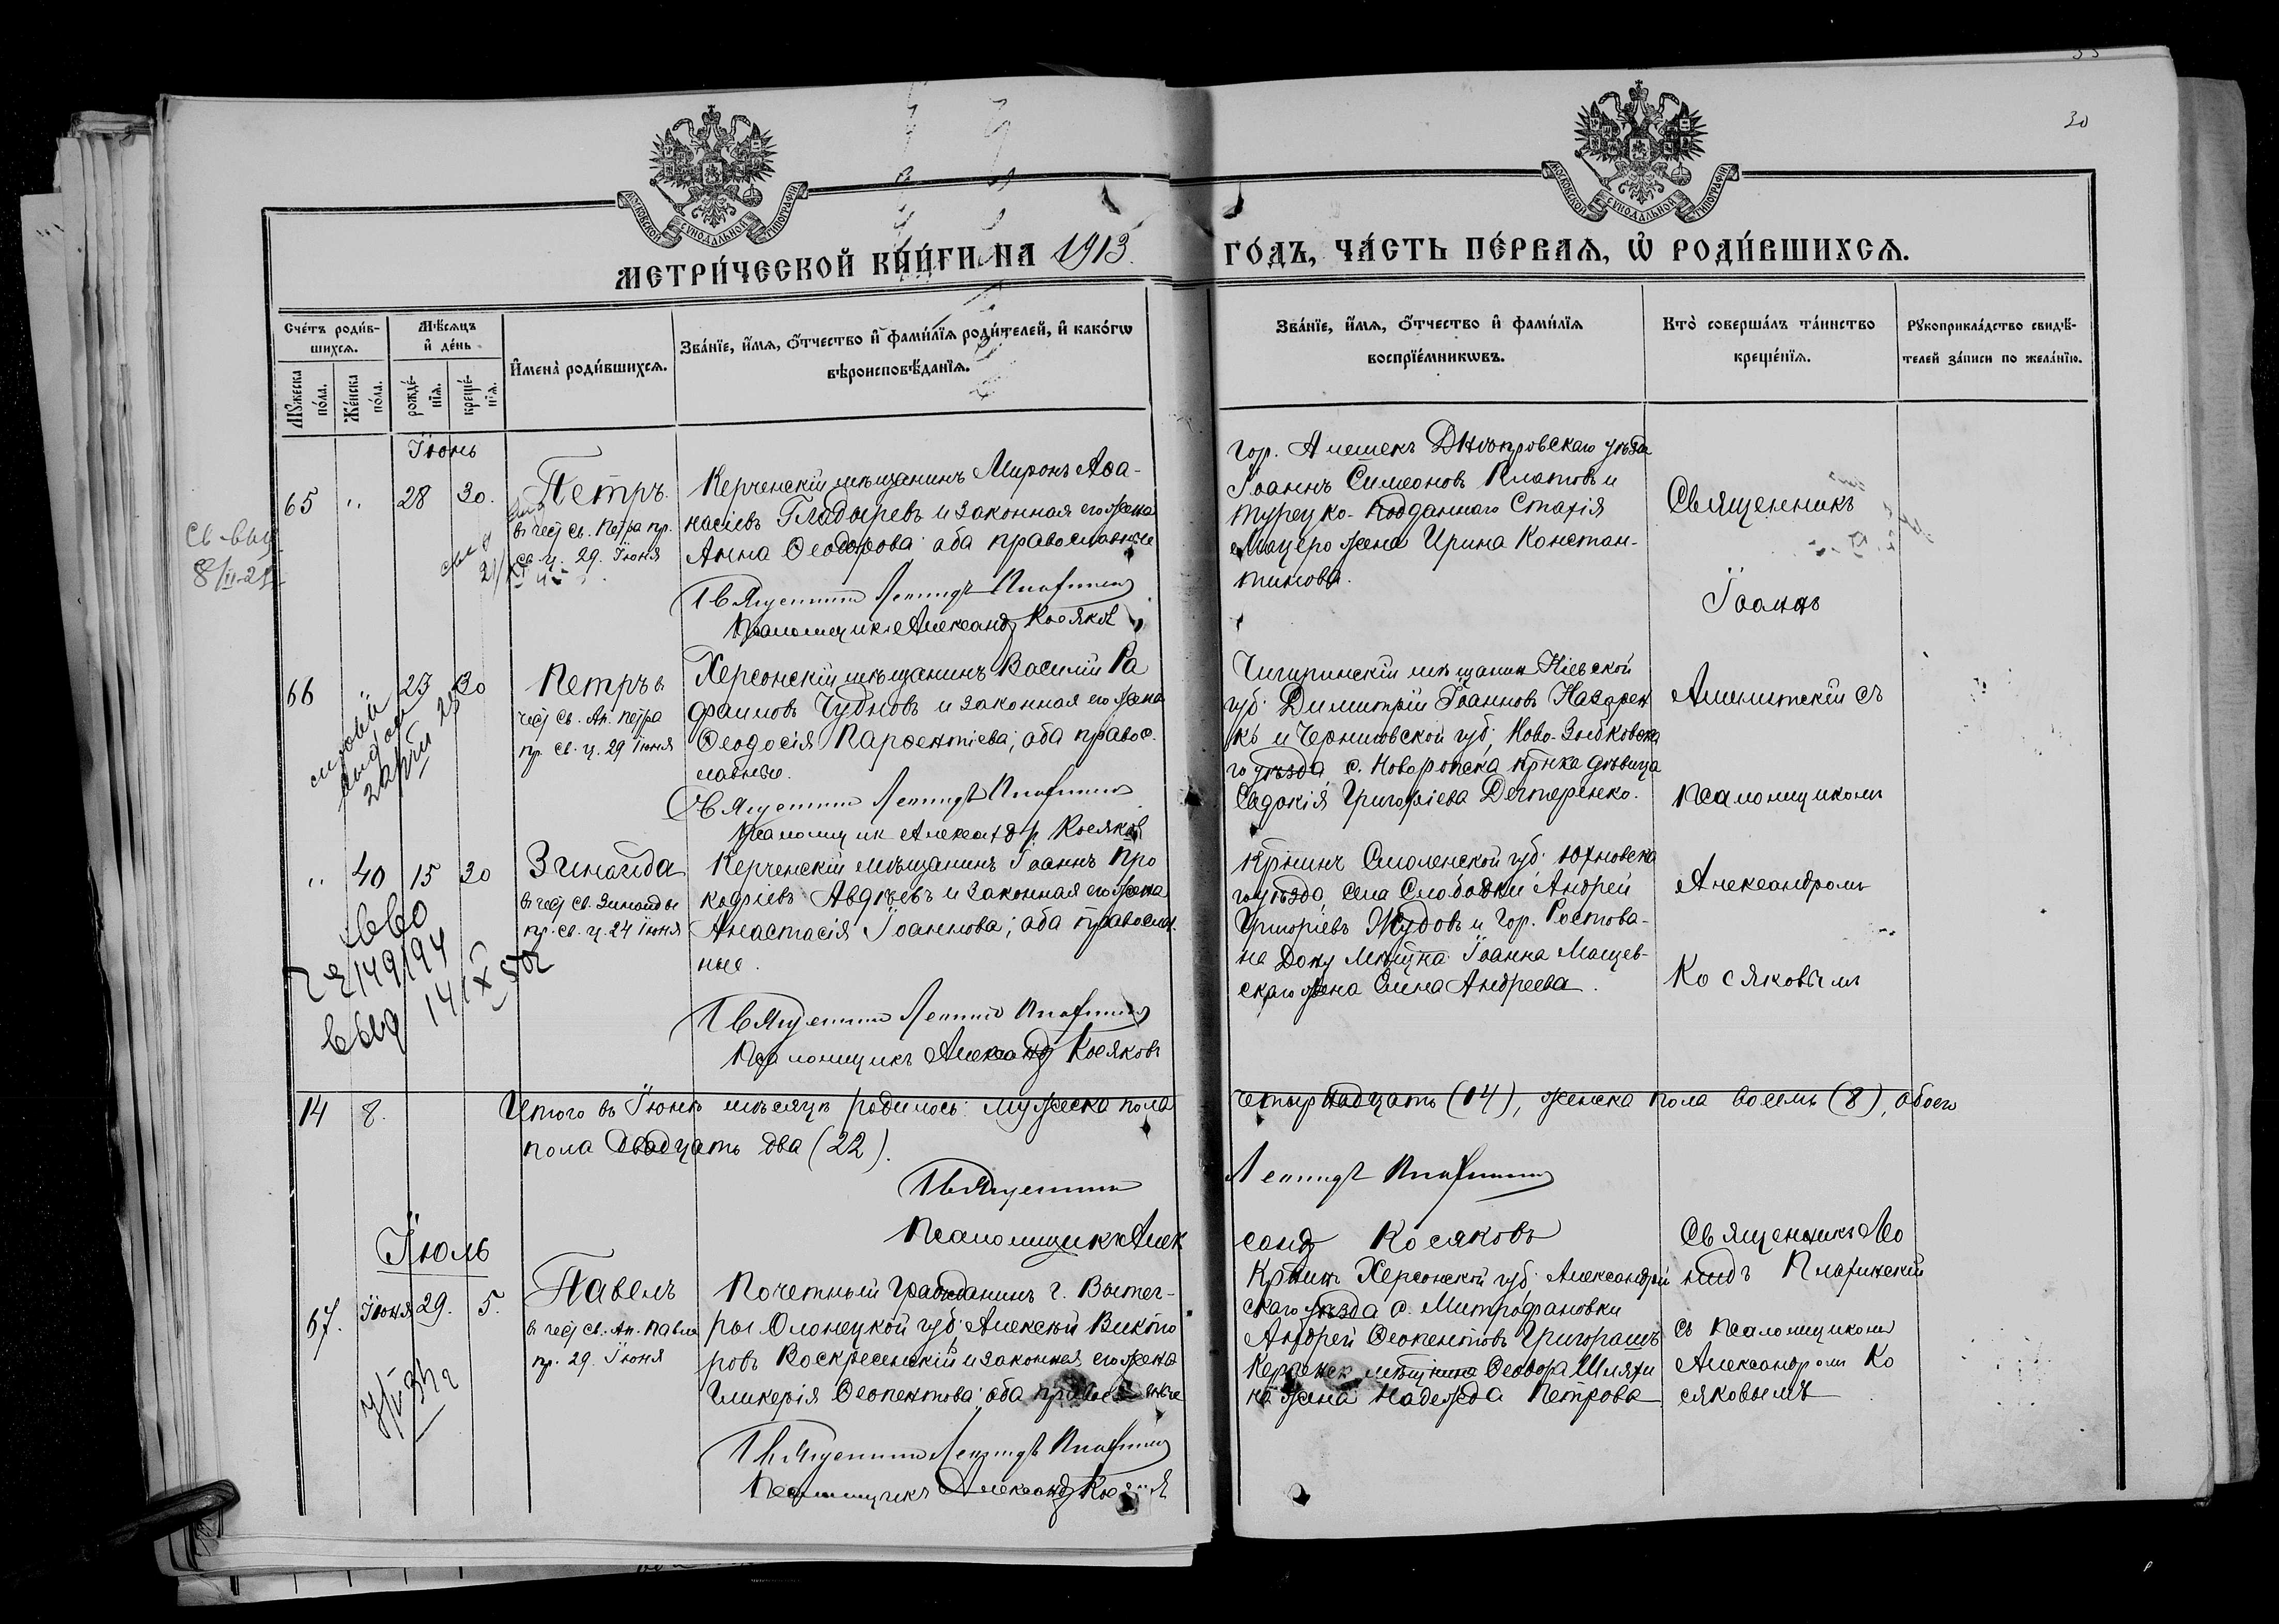 30
МОСКОВСКОЙ СѴНОДАЛЬНОЙ ТИПОГРАФІИ
МОСКОВСКОЙ СѴНОДАЛЬНОЙ ТИПОГРАФІИ
МЕТРИ́ЧЕСКОЙ КНИ́ГИ НА 1913.
ГО́ДЪ, ЧА́СТЬ ПЕ́РВАЯ, Ѡ РОДИ́ВШИХСЯ.
Сче́тъ роди́в-
шихся.
Мѣ́сяцъ
и де́нь
Му́жеска
по́ла.
Же́нска
по́ла.
рожде́-
нїя.
креще́-
нїя.
Имена̀ роди́вшихся.
Зва́нїе, и́мя, о́тчество и фами́лїя роди́телей, и како́гѡ
вѣроисповѣ́данїя.
Зва́нїе, и́мя, о́тчество и фами́лїя
воспрїе́мникѡвъ.
Кто̀ соверша́лъ та́инство
креще́нїя.
Рукоприкла́дство свидѣ́-
телей за́писи по жела́нїю.
Іюнь
65 " 28 30.
Петръ.
въ чес. св. Петра пр.
св. ц. 29. Іюня
Керченскій мѣщанинъ Миронъ Аѳа-
насіевъ Гладыревъ и законная его жена
Анна Ѳеодорова оба православные
Священникъ Леонидъ
Псаломщикъ Александръ Косяковъ
гор. Алешекъ Днѣпровскаго уѣзда
Іоаннъ Симеоновъ Платовъ и
турецко-подданнаго Стахія
жена Ирина Констан-
тинова.
Священникъ
Іоаннъ
66 23 30
Петръ въ
чес. св. Ап. Петра
пр. св. ц. 29 Іюня
Херсонскій мѣщанинъ Василій Ра
фаиловъ Чудновъ и законная его жена
Ѳеодосія Парѳентіева; оба правос-
лавные.
Священникъ Леонидъ
Псаломщикъ Александръ Косяковъ
Чигиринскій мѣщанин Кіевской
губ. Димитрій Іоанновъ Назарен
ко и Черниговской губ, Ново-Зыбковска
го уѣзда с. Новоропска кр-нка дѣвица
Евдокія Григоріева Дегтеренко.
съ
псаломщикомъ
" 40 15 30
Зинаида
въ чес. св. Зинаиды
пр. св. ц. 24 Іюня
Керченскій мѣщанинъ Іоаннъ Про
кофіевъ Авдѣевъ и законная его жена
Анастасія Іоаннова; оба православ
ные.
Священникъ Леонидъ
Псаломщикъ Александръ Косяковъ
Кр-нинъ Смоленской губ. Юхновска
го уѣзда, села Слободки Андрей
Григоріевъ Жудовъ и гор. Ростова-
на Дону Іоанна Мацев-
скаго жена Елена Андреева.
Александромъ
Косяковымъ
14 8.
Итого въ Іюнѣ мѣсяцѣ родилось: мужеска пола
четырнадцать (14), женска пола восемь (8), обоего
пола двадцать два (22).
Священникъ
Леонидъ
Псаломщикъ Алек
сандръ Косяковъ
Іюль
67. Іюня 29. 5.
Павелъ
въ чес. св. Ап. Павла
пр. 29. Іюня
Почетный Гражданинъ г. Вытег-
ры Олонецкой губ, Алексѣй Викто
ровъ Воскресенскій и законная его жена
Гликерія Ѳеопентова; оба
Священникъ Леонидъ
Псаломщикъ Александръ
Кр-нинъ Херсонской губ. Александрій
скаго уѣзда с. Митрофановки
Андрей Ѳеопентовъ Григорашъ
Ѳеодора
жена Надежда Петрова
Священникъ Лео
нидъ
съ псаломщикомъ
Александромъ Ко
сяковымъ